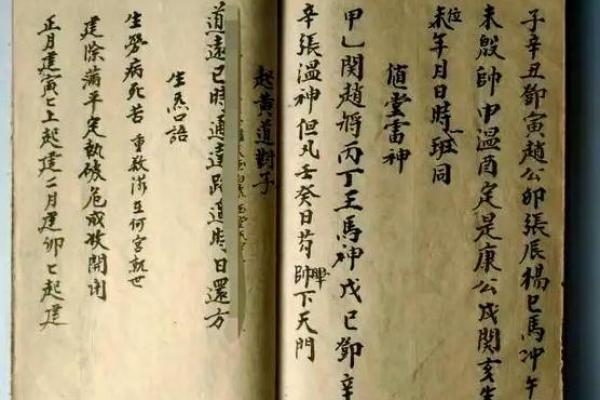 子辛丑鄧寅趙公卯張辰楊巳馬冲午
未殷帥申温酉定是康公戌関亥生
未位年月日時班同
值堂雷神
甲乙関趙將丙丁王馬神戊己鄧辛
辛張溫神但凡壬癸日苟帥下天門
起黄道對子
道遠已時通達路遥時日還方
生炁口語
生勞病死苦 重救 至何宮就世
建除满平定執破危成收開閉
正月建寅寅上起建二月建卯卯上起建